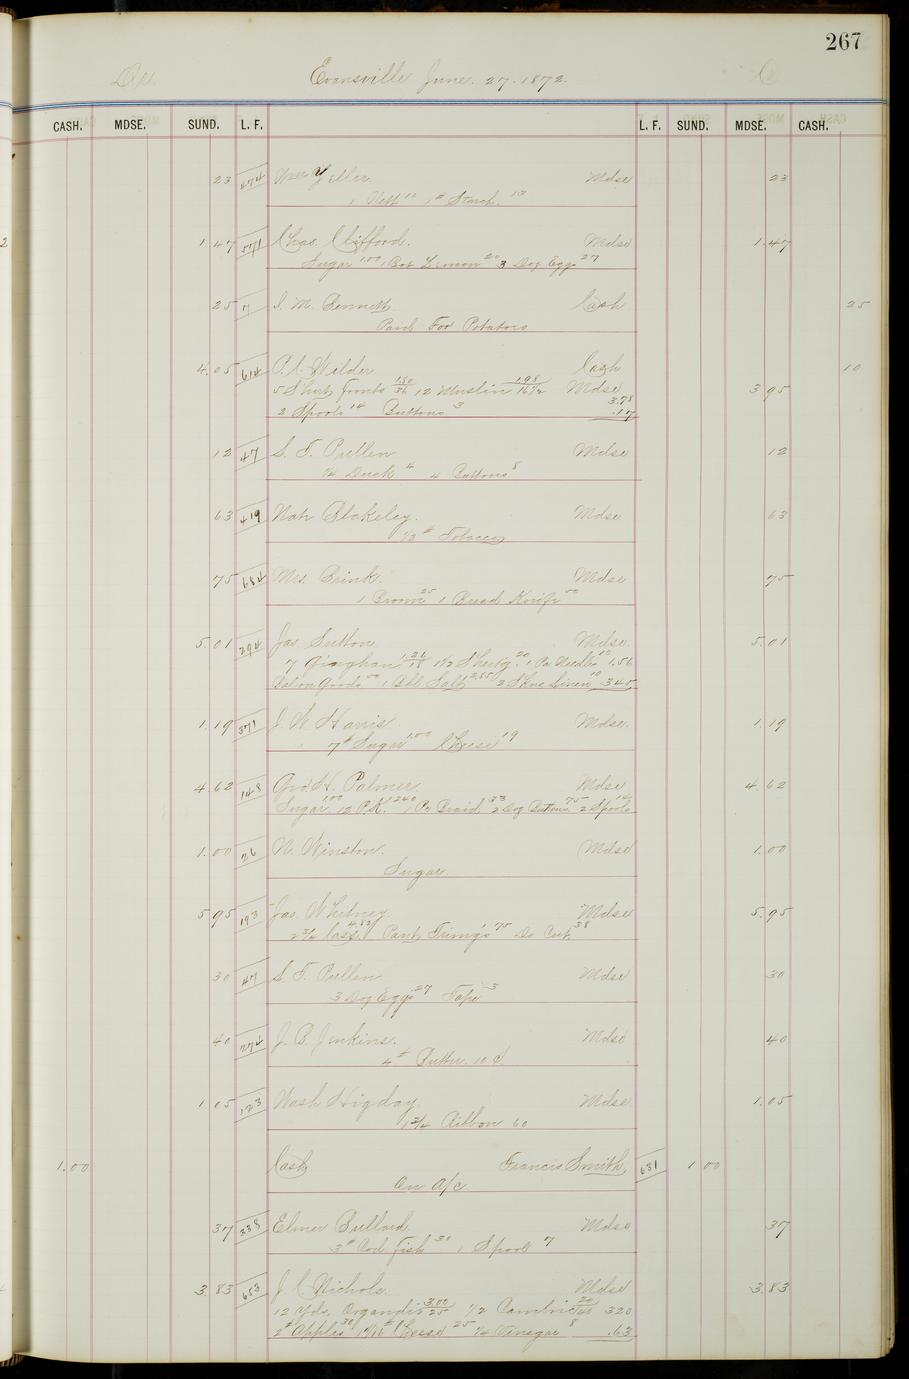 267
Dr. Evansville June. 27. 1872. Cr
CASH. MDSE. SUND. L. F. L. F. SUND. MDSE. CASH.
23 Yeller Mdse 23
1 10 1 # Starch. 13
1.47 571 Chas. Clifford. Mdse 1.47
Sugar 1.00 1 Bot Lemon 20 3 Doz Eggs 27
25 7 S. M. Bennett Cash 25
Paid For Potatoes
4.05 614 P. C. Wilder Cash 10
5 Shirt Fronts 1.80/36 12 Muslin 1.98/16½ Mdse 3.78 3 95
2 Spools 14 Buttons 3 .17
12 47 S. F. Pullen Mdse 12
¼ Duck 4 4 Buttons 8
63 419 Nah Blakeley. Mdse 63
½ # Tobacco
75 684 Mrs. Brink. Mdse 75
1 Broom 25 1 Bread Knife 50
5.01 294 Jas. Sutton Mdse. 5.01
7 Gingham 1.26/18 1½ Sheetg. 20 1 Pa Needles 10 1.56
Goods 50 1 Bbl Salt 2.85 2 Skns Linen 10 3.45
1.19 371 J. W. Harris Mdse. 1.19
7 # Sugar 1.00 Cheese 19
4.62 148 Geo. H. Palmer. Mdse 4.62
Sugar 1.00 12 P.K. 1 Pc Braid 33 2 Doz Buttons 75 2 Spools 14
1.00 26 N. Winston. Mdse 1.00
Sugar.
5 95 193 Jas. Whitney. Mdse 5.95
2¾ Cass. 4.82 Pant Trimg's 75 Do Cut. 38
30 47 S. F. Pullen Mdse 30
3 Doz Eggs 27 Tape 3
40 274 J. B. Jenkins. Mdse 40
4 # Butter 10 ¢
1.05 123 Wash Higday Mdse 1.05
1¾ Ribbon 60
1.00 Cash Francis Smith 631 1 00
On A/c
37 338 Elmer Bullard Mdse 37
3 # Cod Fish 30 1 Spool 7
3.83 653 J. C. Nichols. Mdse 3.83
12 Yds. Organdie 3.00/25 ½ Cambric 20/40 3 20
2 # Apples 30 1 # Cheese 25 ¼ Vinegar 8 .63